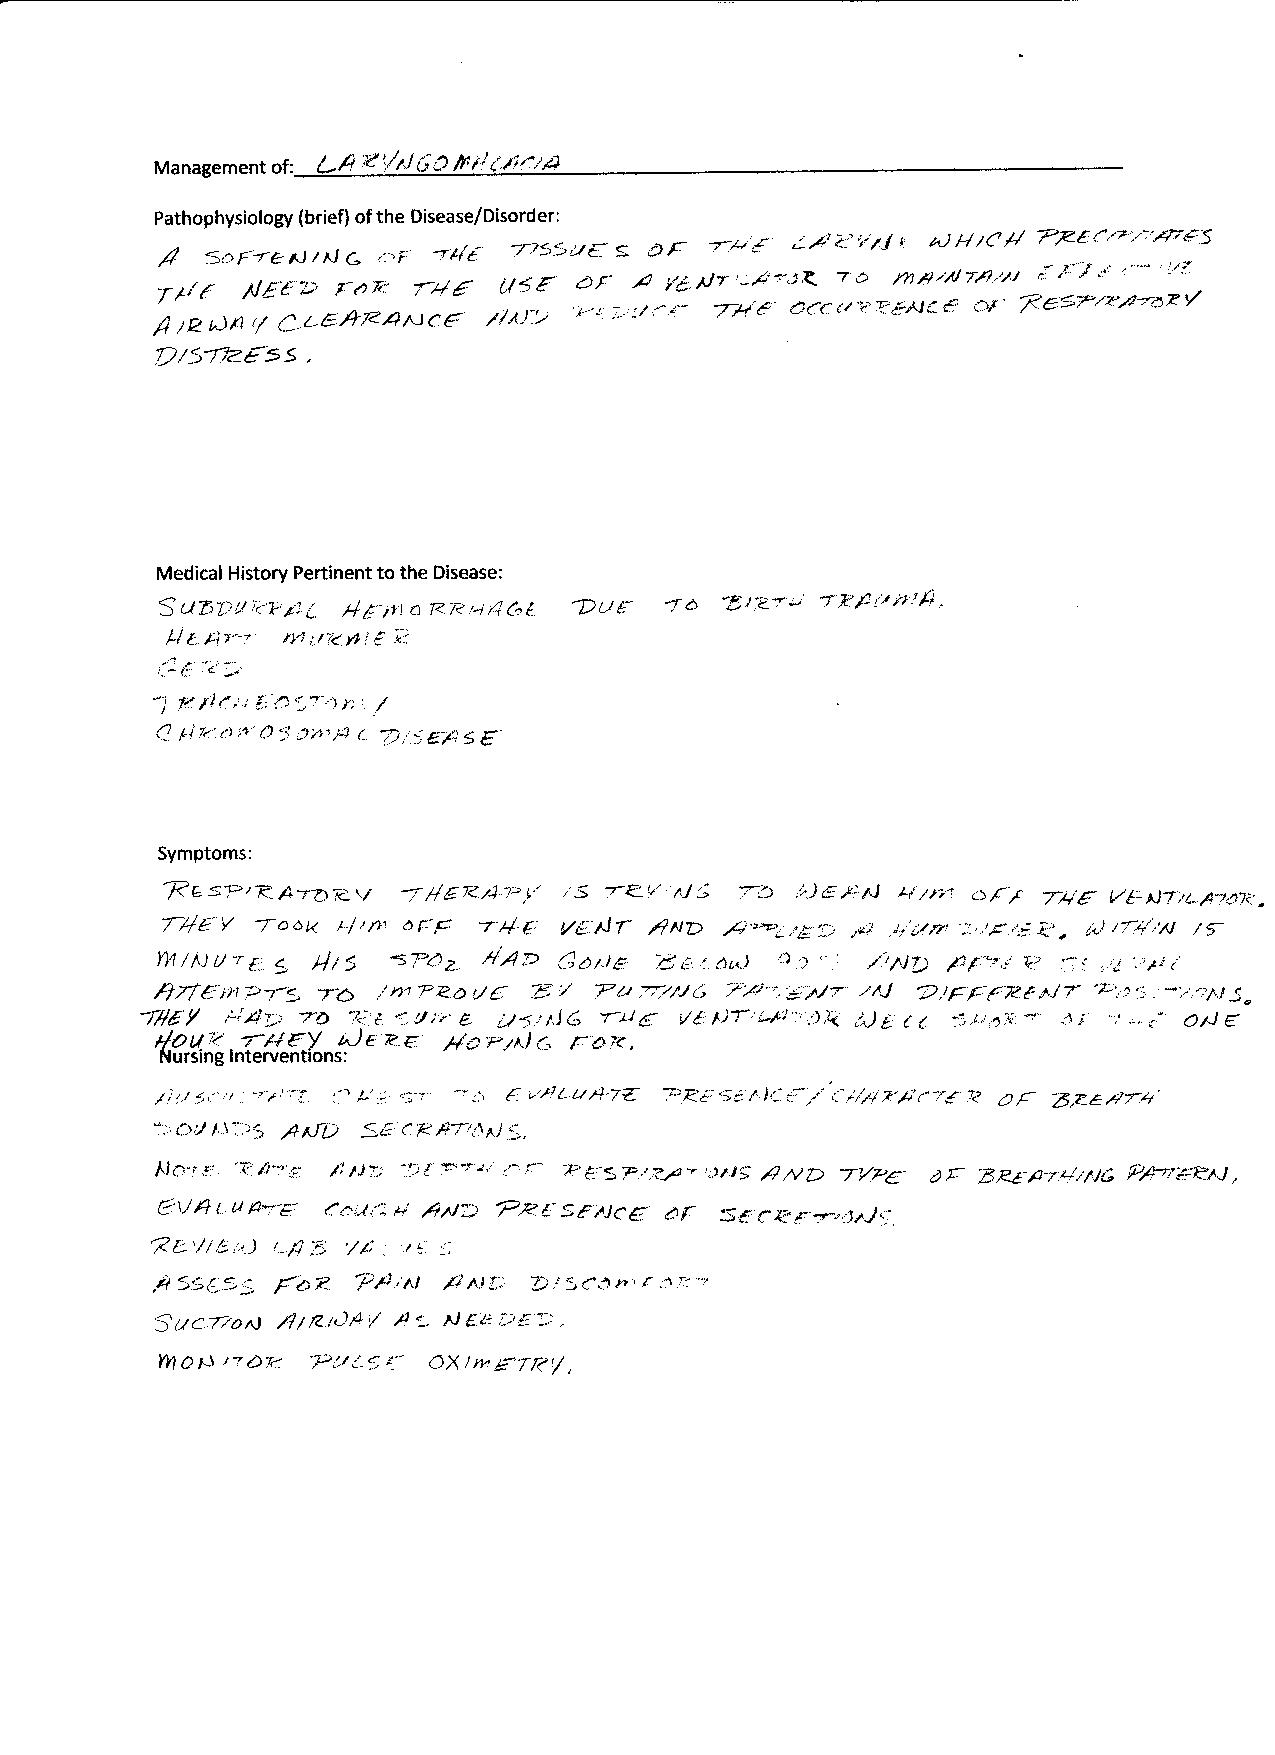 Management of: LARYNGOMALACIA
Pathophysiology (brief) of the Disease/Disorder:
A SOFTENING OF THE TISSUES OF THE LARYNX WHICH PRECIPITATES
THE NEED FOR THE USE OF A VENTILATOR TO MAINTAIN EFFECTIVE
AIRWAY CLEARANCE AND REDUCE THE OCCURRENCE OF RESPIRATORY
DISTRESS.
Medical History Pertinent to the Disease:
SUBDURRAL HEMORRHAGE DUE TO BIRTH TRAUMA.
HEART MURMER
GERD
TRACHEOSTOMY
CHROMOSOMAL DISEASE
Symptoms:
RESPIRATORY THERAPY IS TRYING TO WEAN HIM OFF THE VENTILATOR.
THEY TOOK HIM OFF THE VENT AND APPLIED A HUMIDIFIER. WITHIN 15
MINUTES HIS SPO2 HAD GONE BELOW 90% AND AFTER SEVERAL
ATTEMPTS TO IMPROVE BY PUTTING PATIENT IN DIFFERENT POSITIONS.
THEY HAD TO RESUME USING THE VENTILATOR WELL SHORT OF THE ONE
HOUR THEY WERE HOPING FOR.
Nursing Interventions:
AUSCULTATE CHEST TO EVALUATE PRESENCE/CHARACTER OF BREATH
SOUNDS AND SECRATIONS.
NOTE RATE AND DEPTH OF RESPIRATIONS AND TYPE OF BREATHING PATTERN,
EVALUATE COUGH AND PRESENCE OF SECRETIONS.
REVIEW LAB VALUES
ASSESS FOR PAIN AND DISCOMFORT
SUCTION AIRWAY AS NEEDED.
MONITOR PULSE OXIMETRY.